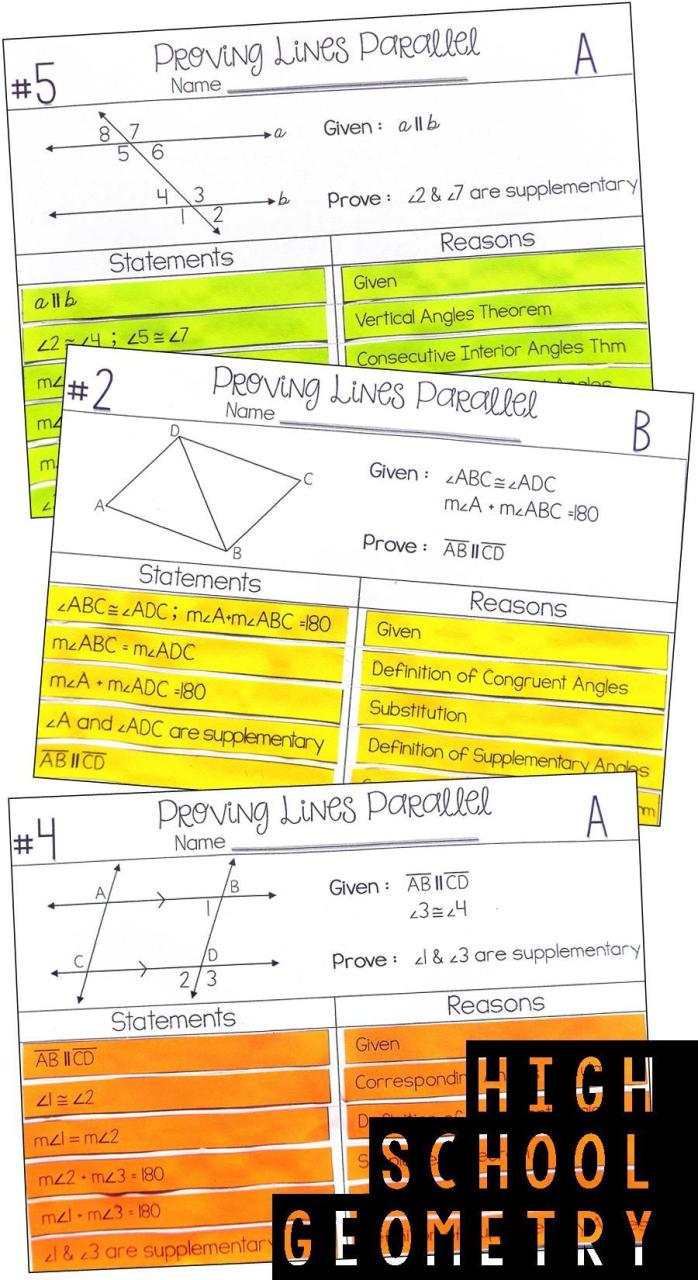 Proving Lines Parallel A
#5 Name
8 7
a
Given : a || b
5 6
4 3
b
Prove : ∠2 & ∠7 are supplementary
1 2
Statements Reasons
a || b Given
∠2 ≅ ∠4 ; ∠5 ≅ ∠7 Vertical Angles Theorem
m∠ Consecutive Interior Angles Thm
m∠ Angles
m
∠
Proving Lines Parallel B
#2 Name
D
C
A
B
Given : ∠ABC ≅ ∠ADC
m∠A + m∠ABC =180
Prove : AB || CD
Statements Reasons
∠ABC ≅ ∠ADC ; m∠A+m∠ABC =180 Given
m∠ABC = m∠ADC Definition of Congruent Angles
m∠A + m∠ADC =180 Substitution
∠A and ∠ADC are supplementary Definition of Supplementary Angles
AB || CD
Proving Lines Parallel A
#4 Name
A B
1
C D
2 3
Given : AB || CD
∠3 ≅ ∠4
Prove : ∠1 & ∠3 are supplementary
Statements Reasons
AB || CD Given
∠1 ≅ ∠2
m∠1 = m∠2
m∠2 + m∠3 = 180
m∠1 + m∠3 = 180
∠1 & ∠3 are supplementary
HIGH
SCHOOL
GEOMETRY